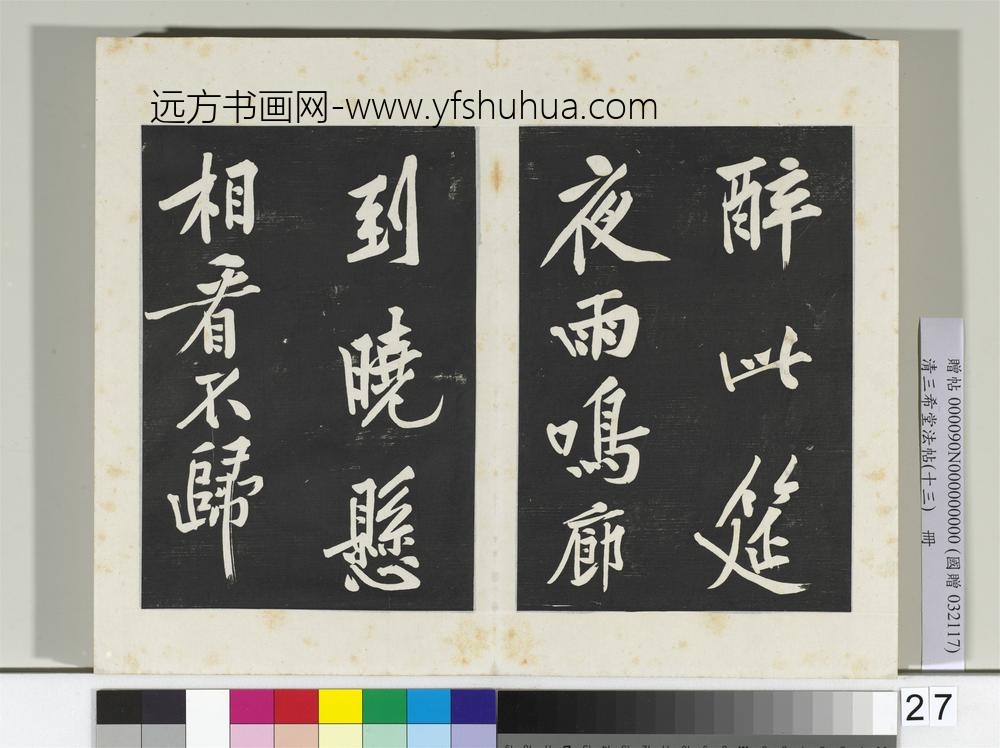 远方书画网-www.yfshuhua.com
醉此筵
夜雨鳴廊
到曉懸
相看不歸
贈帖 000090N000000000 (國贈 032117)
清三希堂法帖(十三) 冊
27